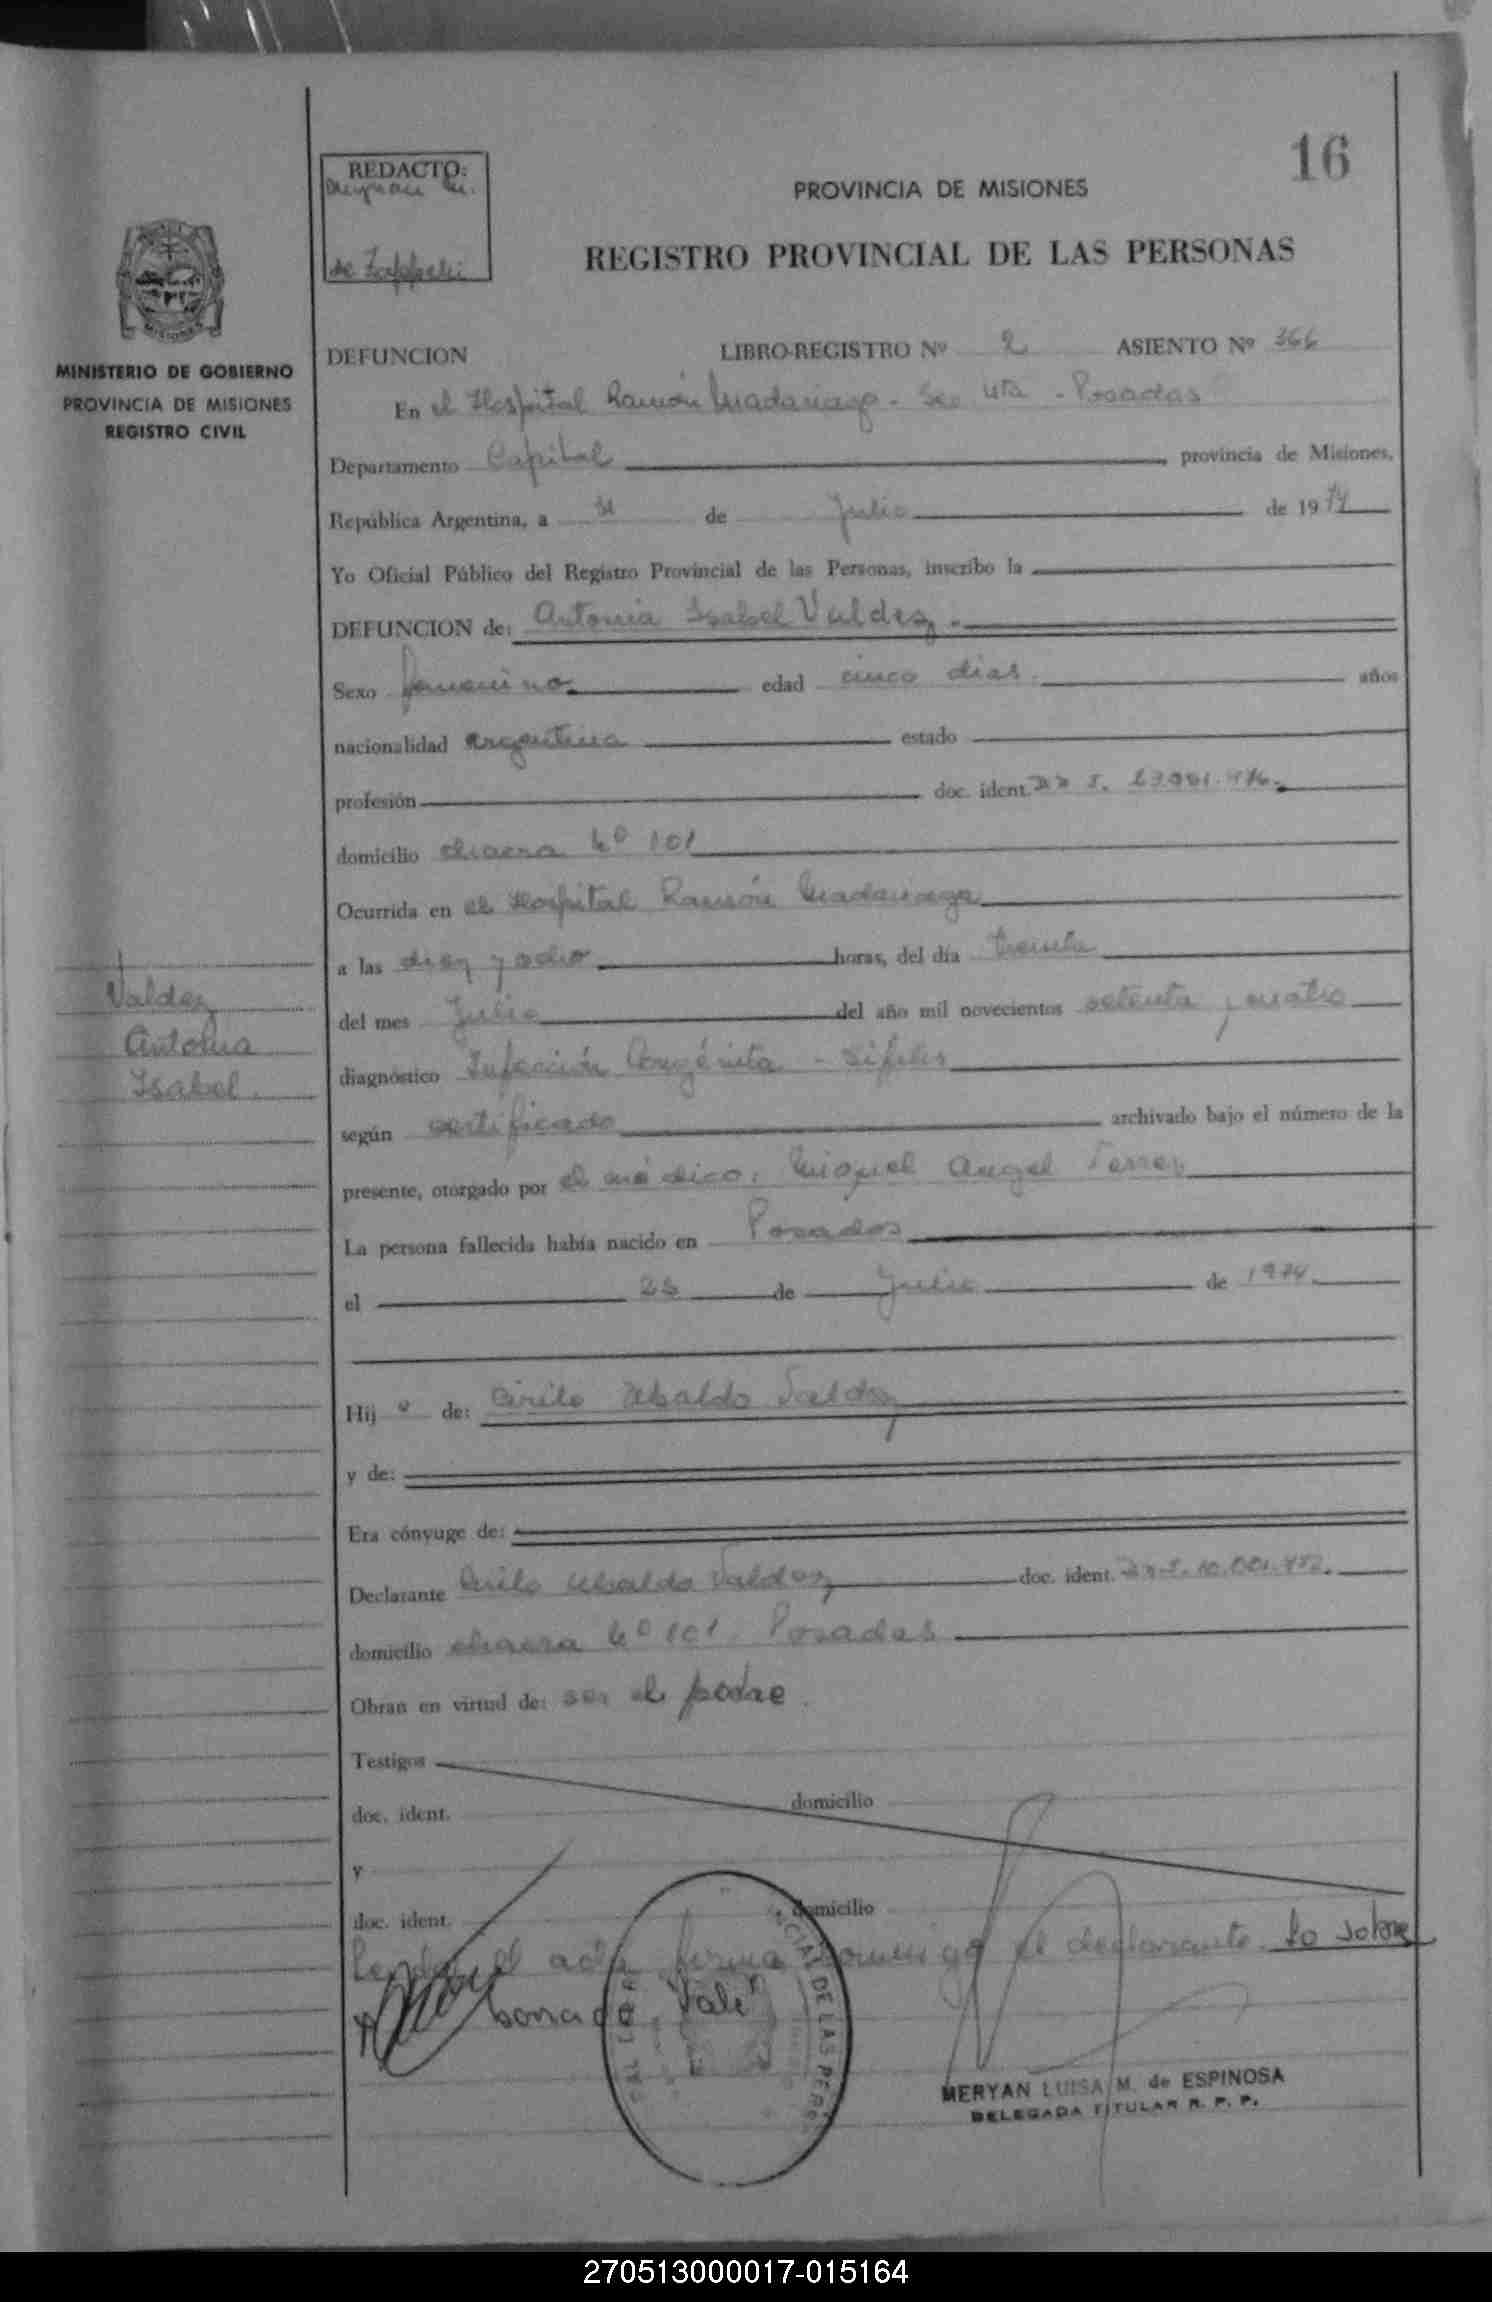 16
REDACTO:
Meryan M.
de
PROVINCIA DE MISIONES
REGISTRO PROVINCIAL DE LAS PERSONAS
MISIONES
MINISTERIO DE GOBIERNO
PROVINCIA DE MISIONES
REGISTRO CIVIL
DEFUNCION LIBRO-REGISTRO Nº 2 ASIENTO Nº 366
En el Hospital Ramón Madariaga - Sec 4ta - Posadas
Departamento Capital provincia de Misiones,
República Argentina, a 31 de Julio de 1974
Yo Oficial Público del Registro Provincial de las Personas, inscribo la
DEFUNCION de: Antonia Isabel Valdez.
Sexo femenino edad cinco dias. años
nacionalidad argentina estado
profesión doc. ident.
domicilio chacra Nº 101
Ocurrida en el Hospital Ramón Madariaga
a las diez y ocho horas, del día treinta
del mes Julio del año mil novecientos setenta y cuatro
diagnóstico Infección Congénita - Sífilis
según certificado archivado bajo el número de la
presente, otorgado por el médico: Miguel Angel Ferrer
La persona fallecida había nacido en Posadas
el 25 de Julio de 1974
Hij a de: Cirilo Ubaldo Valdez
y de:
Era cónyuge de:
Declarante Cirilo Ubaldo Valdez doc. ident.
domicilio chacra Nº 101. Posadas
Obran en virtud de: ser el padre.
Testigos
doc. ident. domicilio
y
doc. ident. domicilio
Leida el acta firma conmigo el declarante. Lo sobre
borrado "Vale"
Valdez
Antonia
Isabel.
CIAL DE LAS PERS
MERYAN LUISA M. de ESPINOSA
DELEGADA TITULAR R. P. P.
270513000017-015164